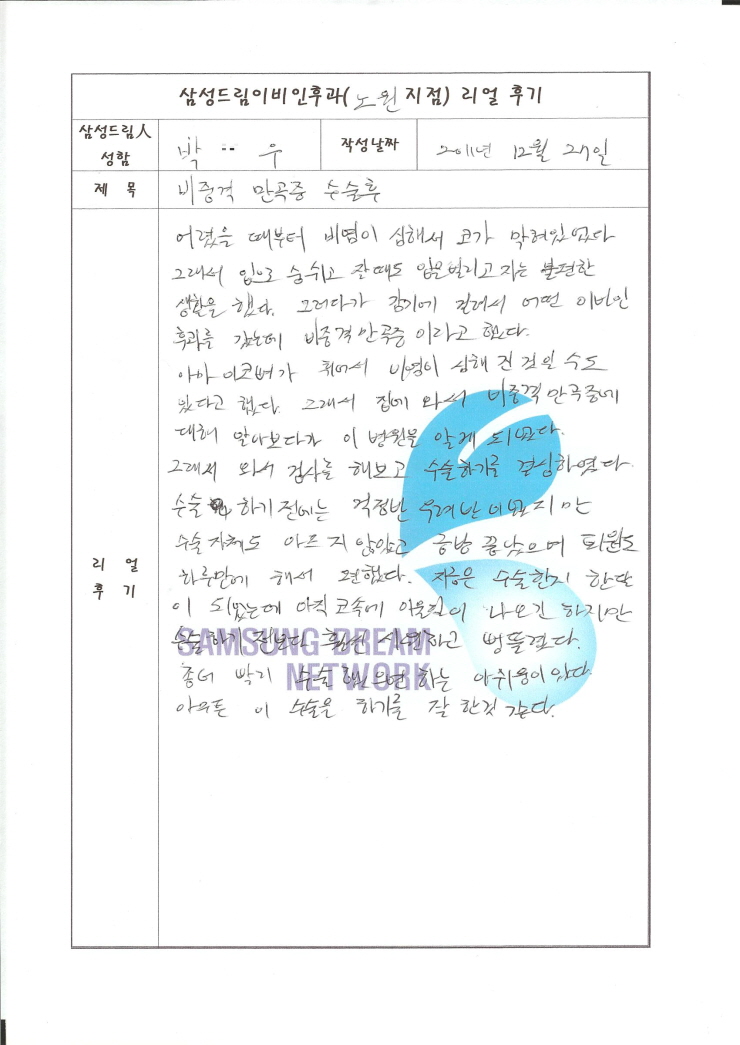 삼성드림이비인후과(노원지점) 리얼 후기
삼성드림人 성함
박 ·· 우
작성날짜
2011년 12월 27일
제 목
비중격 만곡증 수술후
리 얼 후 기
어렸을 때부터 비염이 심해서 코가 막혀있었다
그래서 입으로 숨쉬고 잘때도 입을벌리고 자는 불편한
생활을 했다. 그러다가 감기에 걸려서 어떤 이비인
후과를 갔는데 비중격만곡증 이라고 했다.
아마 이코뼈가 휘어서 비염이 심해 진 것일 수도
있다고 했다. 그래서 집에 와서 비중격만곡증에
대해 알아보다가 이 병원을 알게 되었다.
그래서 와서 검사를 해보고 수술하기를 결심하였다.
수술 하기 전에는 걱정반 우려반 이였지만
수술 자체도 아프지 않았고 금방 끝났으며 퇴원도
하루만에 해서 편했다. 지금은 수술한지 한달
이 되었는데 아직 코속에 이물질이 나오긴 하지만
수술하기 전보다 훨씬 시원하고 뻥뚫렸다.
좀더 빨리 수술했으면 하는 아쉬움이 있다.
아무튼 이 수술을 하기를 잘 한것 같다.
SAMSUNG DREAM
NETWORK